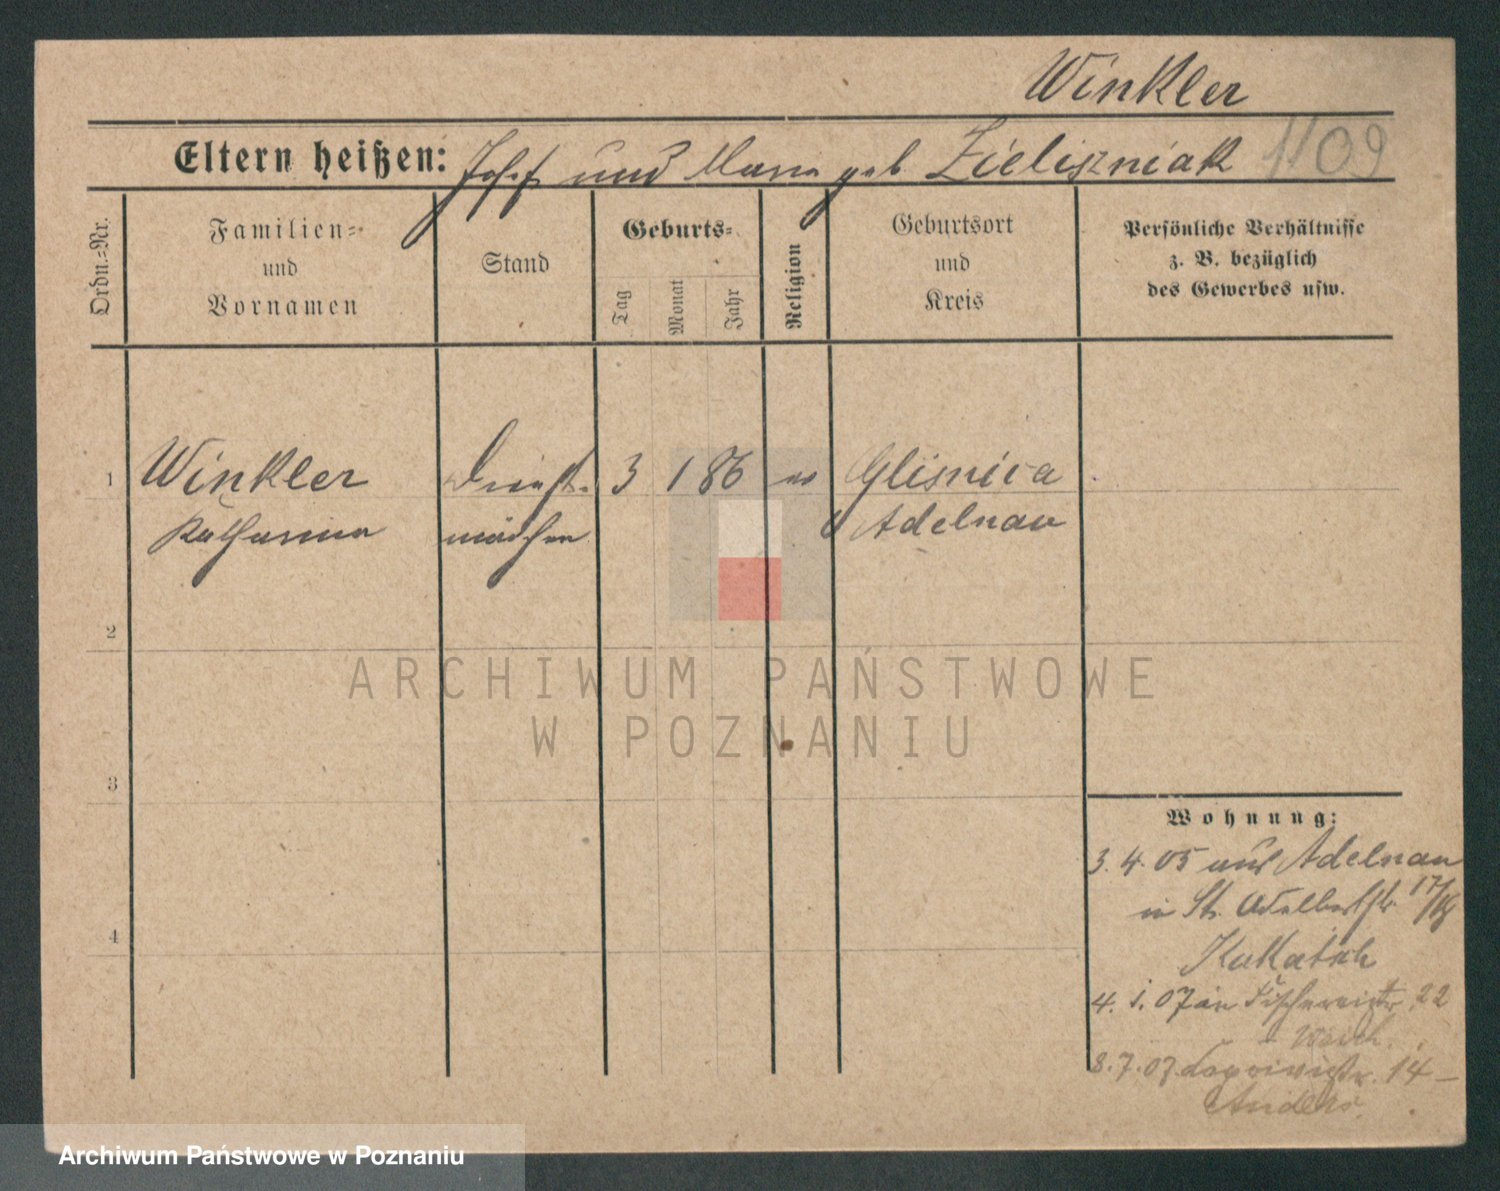 Winkler
Eltern heißen: Josef und Maria geb Zieliszniak 1109
Ordn.=Nr.
Familien=
und
Vornamen
Stand
Geburts=
Tag
Monat
Jahr
Religion
Geburtsort
und
Kreis
Persönliche Verhältnisse
z. B. bezüglich
des Gewerbes usw.
1 Winkler Dienst- 3 1 86 Glisnica
Katharina mädchen Adelnau
2
3
4
Wohnung:
3. 4. 05 aus Adelnau
in St. Adalbertstr. 17/18
4. 1. 07 in Fischereistr. 22
8. 7. 07. 14 –
Anders.
ARCHIWUM PAŃSTWOWE
W POZNANIU
Archiwum Państwowe w Poznaniu